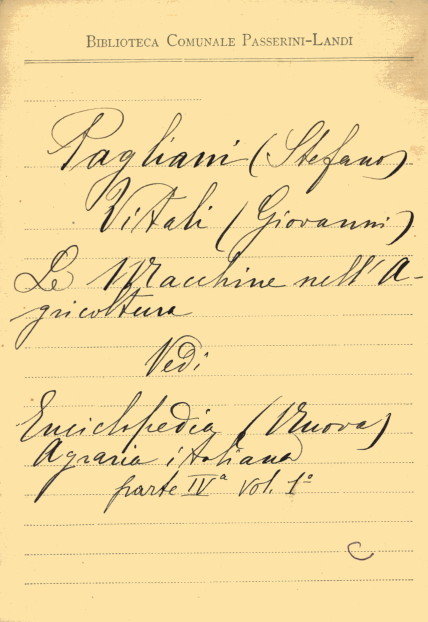 Biblioteca Comunale Passerini-Landi
Pagliani (Stefano)
Vitali (Giovanni)
Le Macchine nell'A-
gricoltura
Vedi
Enciclipedia (Nuova)
Agraria italiana
parte IVª vol. 1º
C